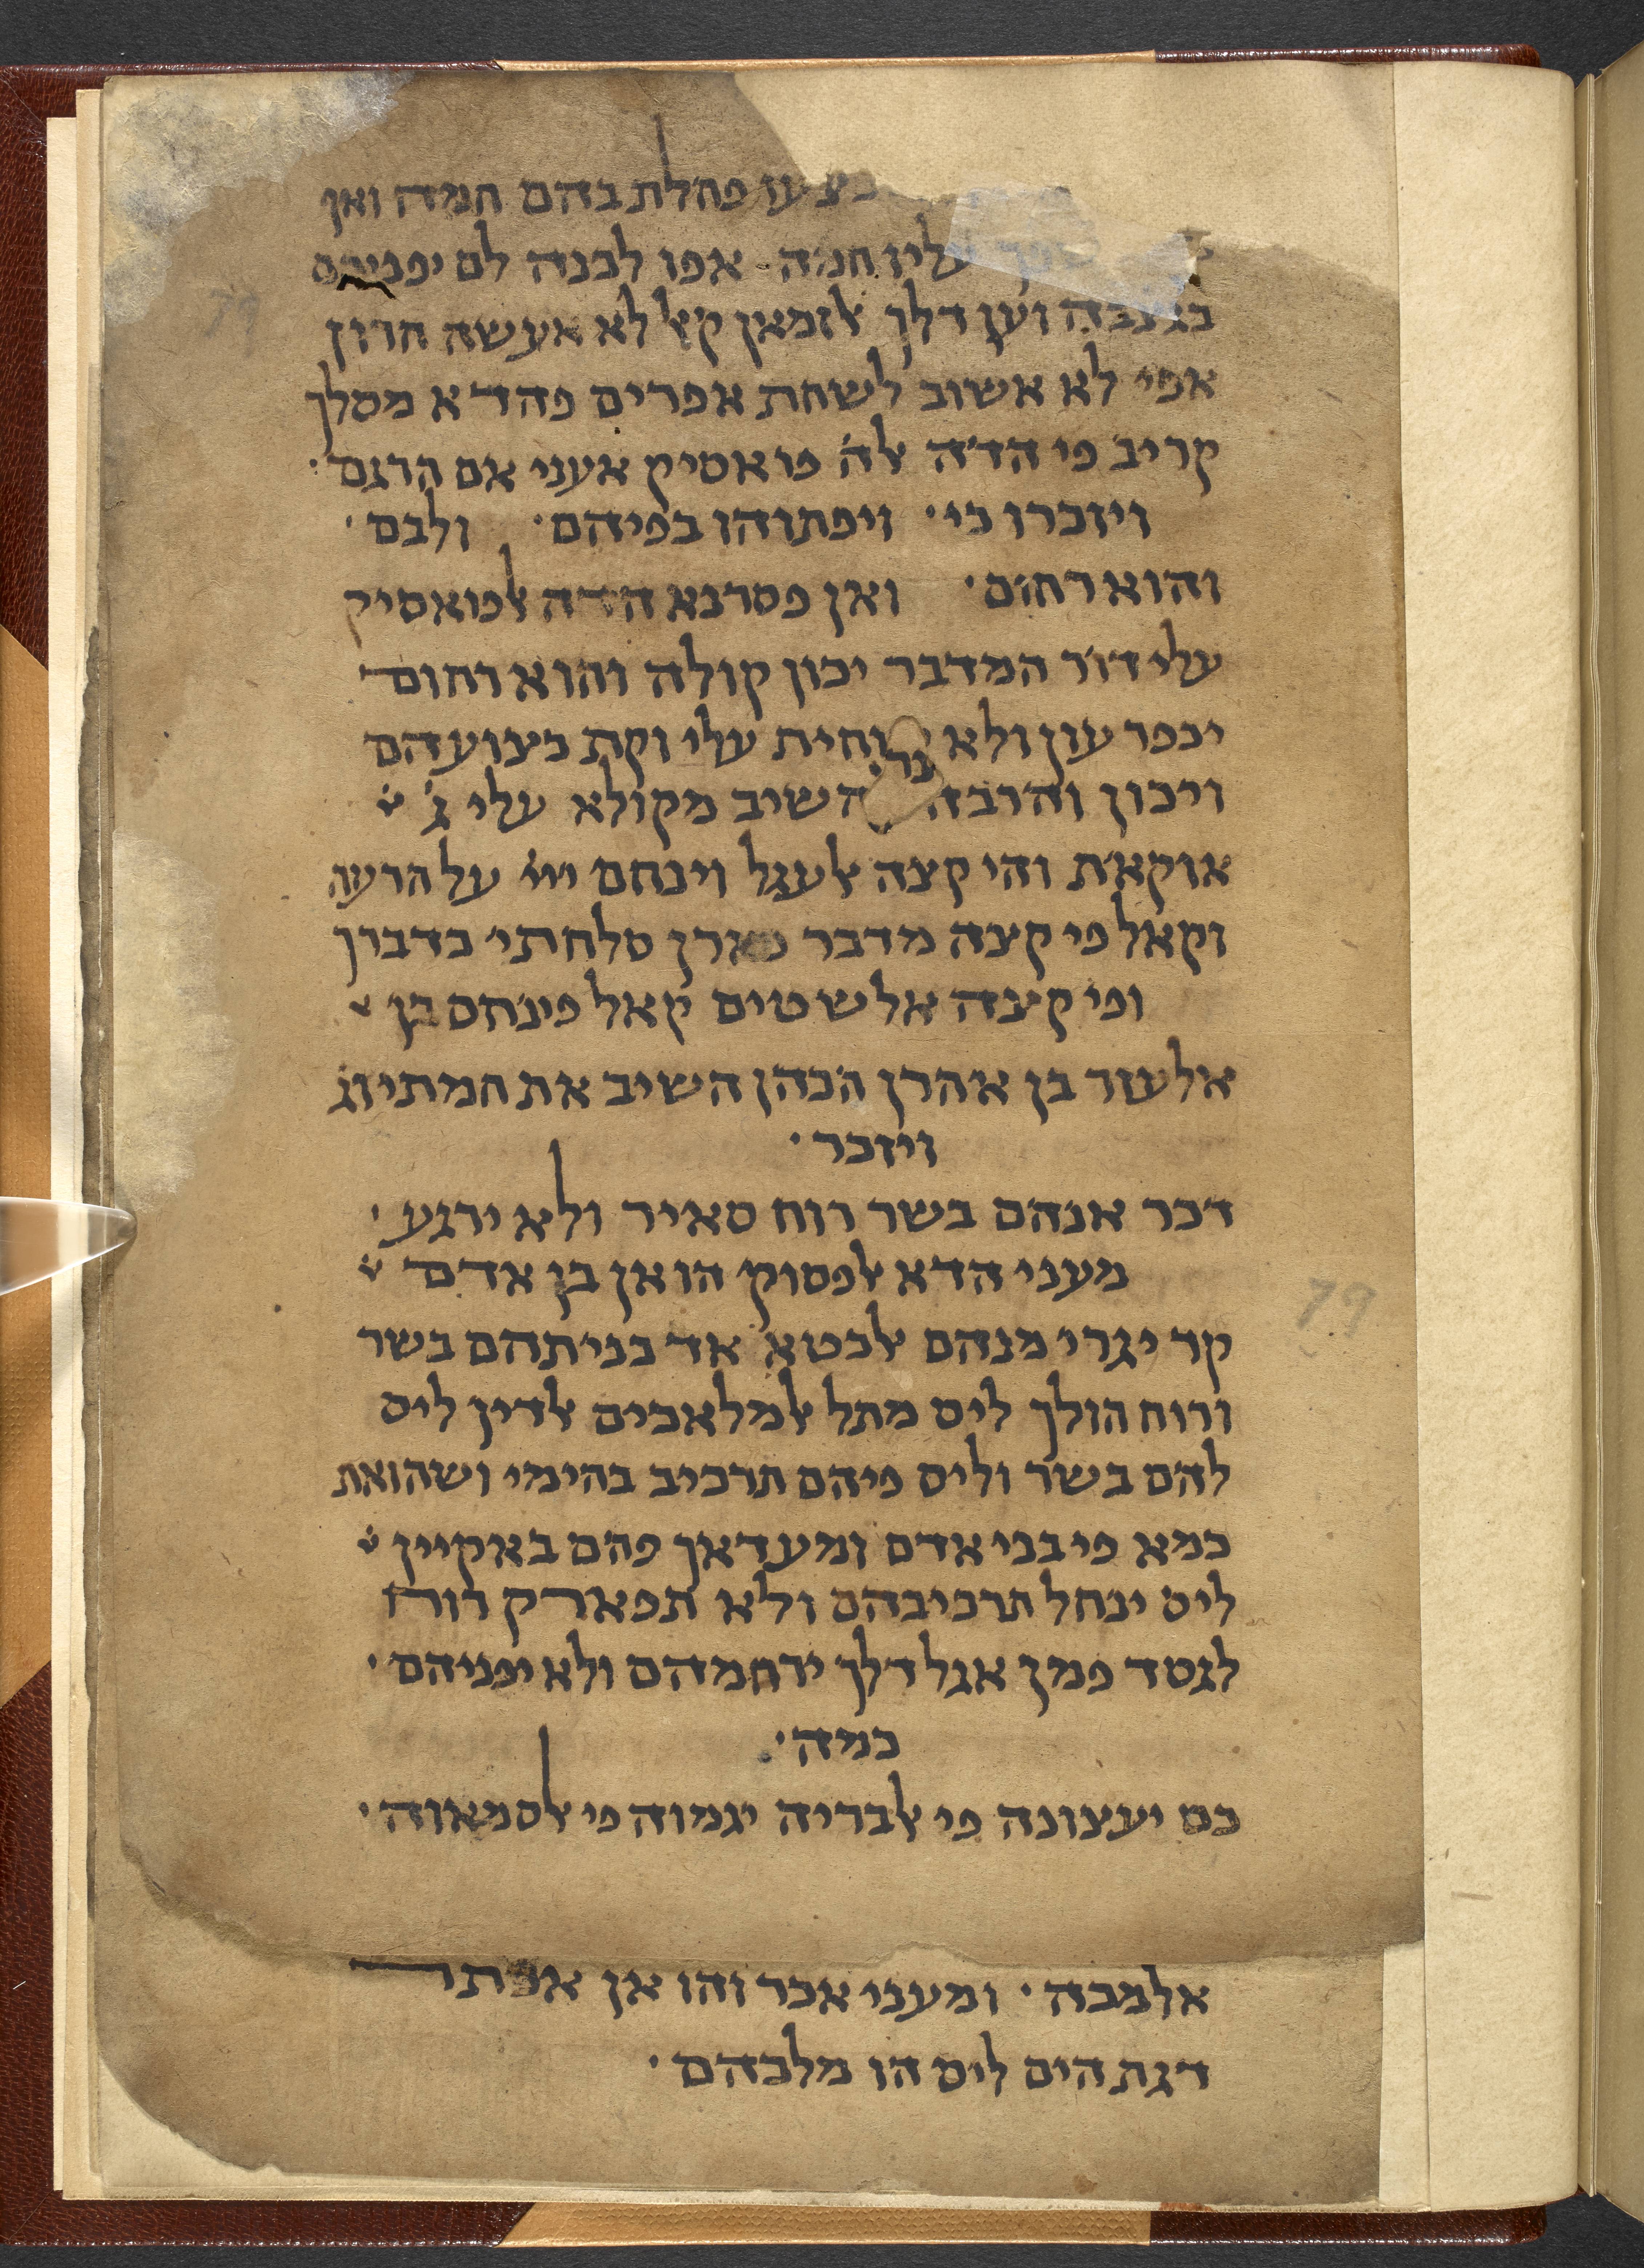 פחלת בהם חמה ואן
עליו חמה אפו לכנה לם יפניהם
וען דלך אלזמאן קאל לא אעשה חרון
אפי לא אשוב לשחת אפרים פהדא מסלך
קריב פי הדה אלה פואסיק אעני אם תרגם ·
ויזכרו כי · ויפתוהו בפיהם · ולבם ·
והוא רחום · ואן פסרנא הדה אלפואסיק
עלי דור המדבר יכון קולה והוא רחום
יכפר עון ולא ישחית עלי וקת
ויכון והרבה להשיב מקולא עלי ג
אוקאת והי קצה אלעגל וינחם ייי על הרעה
וקאל פי קצה מדבר פארן סלחתי כדברך
ופי קצה אלשטים קאל פינחס בן
אלעזר בן אהרן הכהן השיב את חמתי וג
ויזכר ·
דכר אנהם בשר רוח סאיר ולא ירגע ·
מעני הדא אלפסוק הו אן בן אדם
קד יגרי מנהם אלכטא אד בניתהם בשר
ורוח הולך ליס מתל אלמלאכים אלדין ליס
להם בשר וליס פיהם תרכיב בהימי ושהואת
כמא פי בני אדם ומע דאך פהם באקיין
ליס ינחל תרכיבהם ולא תפארק רוח
לגסד פמן אגל דלך ירחמהם ולא יפניהם ·
כמה ·
כם יעצונה פי אלבריה יגמוה פי אלסמאוה ·
אלמכה · ומעני אכר והו אן
דגת הים ליס הו מלכהם ·
79